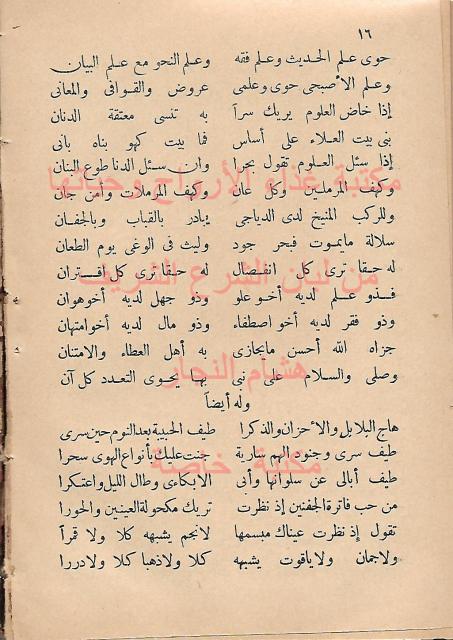 ١٦
حوى علم الحديث وعلم فقه وعلم النحو مع علم البيان
وعلم الأصبحي حوى وعلمى عروض والقوافى والمعانى
إذا خاض العلوم يريك سرآ به تنسى معتقة الدنان
بنى بيت العلاء على أساس فما بيت كهو بناه بانى
إذا سئل العلوم تقول بحرا وان سئل الدنا طوع البنان
وكهف المرملين وكل عان وكهف المرملات وأمن جان
وللركب المنيخ لدى الدياجى يبادر بالقباب وبالجفان
سلالة مايموت فبحر جود وليث فى الوغى يوم الطعان
له حقا ترى كل انفصال له حقا ترى كل اقتران
فذو علم لديه أخو علو وذو جهل لديه أخوهوان
وذو فقر لديه أخو اصطفاء وذو مال لديه أخوامتهان
جزاه الله أحسن مايجازى به أهل العطاء والامتنان
وصلى والسلام على نبى بها يحوى التعدد كل آن
وله أيضاً
هاج البلابل والأحزان والذكرا طيف الحبيبة بعد النوم حين سرى
طيف سرى وجنود الهم سارية جنت عليك بأنواع الهوى سحرا
طيف أبالى عن سلوانها وأبى الابكاءى وطال الليل واعتكرا
من حب فاترة الجفنين إذ نظرت تريك مكحولة العينين والحورا
تقول إذ نظرت عيناك مبسمها لانجم يشبهه كلا ولا قمرآ
ولاجمان ولاياقوت يشبهه كلا ولاذهبا كلا ولادررا
مكتبة غذاء الأرواح رحيانها
من لبان الشرع الشريف
هشام النجار
مكتبة خاصة